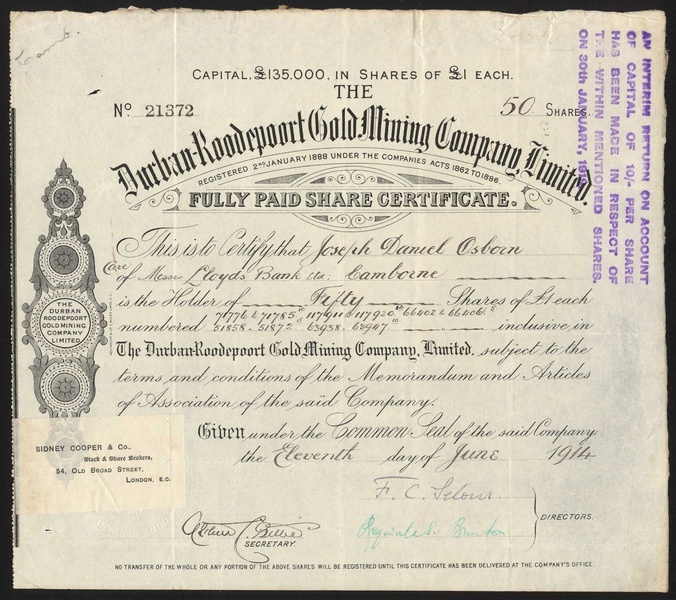 CAPITAL, £135,000, IN SHARES OF £1 EACH.
THE
No. 21372
50 SHARES.
Durban-Roodepoort Gold Mining Company, Limited.
REGISTERED 2ND JANUARY 1888 UNDER THE COMPANIES ACTS 1862 TO 1886.
FULLY PAID SHARE CERTIFICATE.
This is to Certify that Joseph Daniel Osborn
Care of Messrs Lloyds Bank Ltd. Camborne
is the Holder of Fifty Shares of £1 each
numbered 71776 to 71785. 117911 to 117920. 66402 to 66406.
51858. 51872 63938. 63947 inclusive, in
The Durban-Roodepoort Gold Mining Company, Limited, subject to the
terms and conditions of the Memorandum and Articles
of Association of the said Company.
Given under the Common Seal of the said Company
the Eleventh day of June 1914
F. C. Selous
DIRECTORS.
SECRETARY.
NO TRANSFER OF THE WHOLE OR ANY PORTION OF THE ABOVE SHARES WILL BE REGISTERED UNTIL THIS CERTIFICATE HAS BEEN DELIVERED AT THE COMPANY'S OFFICE.
THE
DURBAN
ROODEPOORT
GOLD MINING
COMPANY
LIMITED
SIDNEY COOPER & Co.
Stock & Share Brokers,
54, OLD BROAD STREET,
LONDON, E.C.
AN INTERIM RETURN ON ACCOUNT
OF CAPITAL OF 10/- PER SHARE
HAS BEEN MADE IN RESPECT OF
THE WITHIN MENTIONED SHARES.
ON 30th JANUARY,